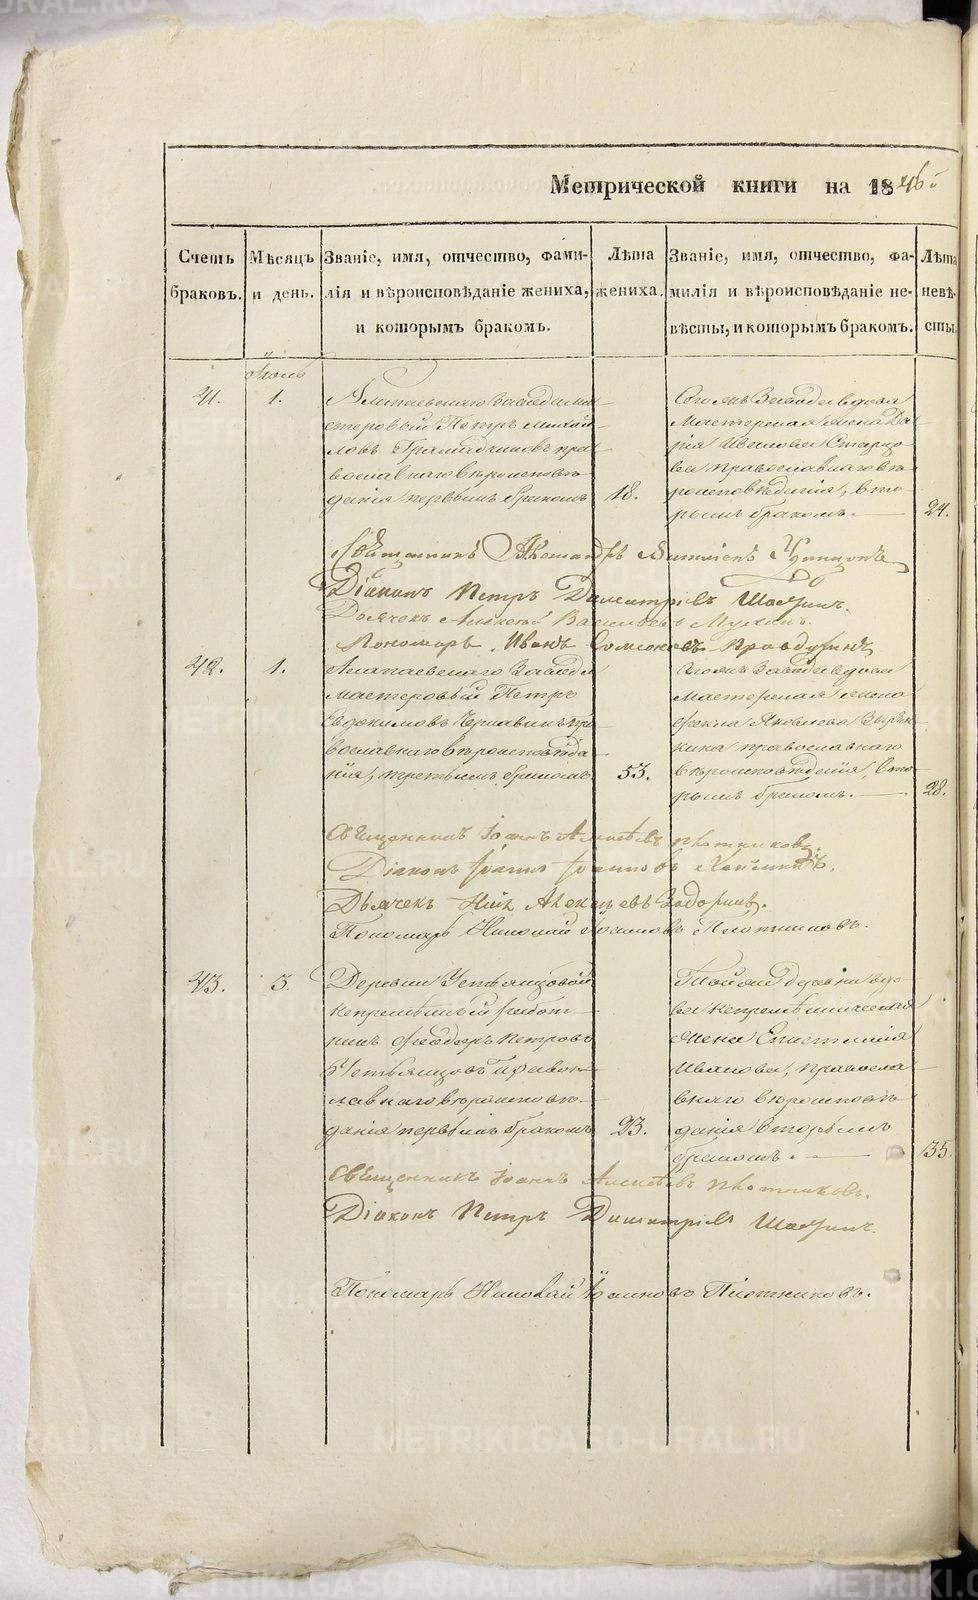 Метрической книги на 1846ӏ
Счетъ браковъ.
Мѣсяцъ и день.
Званіе, имя, отчество, фами-
лія и вѣроисповѣданіе жениха,
и которымъ бракомъ.
Лѣта
жениха.
Званіе, имя, отчество, фа-
милія и вѣроисповѣданіе не-
вѣсты, и которымъ бракомъ.
Лѣта
невѣ-
сты.
41.
1.
Алапаевскаго Завода ма-
стеровый Петръ Михай
ловъ пра
вославнаго вѣроисповѣ
данія первымъ бракомъ
18.
Тогожъ Завода вдова
Мастерская жена Да
рія Старцо
ва православнаго вѣ
роисповѣданія, вто-
рымъ бракомъ.
24.
Священникъ Александръ
Діаконъ Петръ Димитріевъ
Дьячекъ Алексѣй Васильевъ
Пономарь Иванъ Симеоновъ
42.
1.
Алапаевскаго Завода
мастеровый Петръ
Евдокимовъ пра
вославнаго вѣроисповѣда
нія, третьимъ бракомъ
53.
Тогожъ Завода вдова
мастерская жена
Фекла Яковлева
православнаго
вѣроисповѣданія, вто
рымъ бракомъ.
28.
Священникъ Іоаннъ Алексѣевъ Плотниковъ.
Діаконъ Іоаннъ Іоанновъ
Дьячекъ Алексѣевъ Задоринъ.
Пономарь Николай Іоанновъ Плотниковъ.
43.
3.
Деревни Устьянцовой
непремѣнный работ-
никъ Феодоръ Петровъ
Устьянцовъ правос
лавнаго вѣроисповѣ
данія первымъ бракомъ
23.
Той же деревни вдо
ва непремѣнническая
жена Епистимія
Иванова, правосла
внаго вѣроисповѣ
данія вторымъ
бракомъ.
35.
Священникъ Іоаннъ Алексѣевъ Плотниковъ.
Діаконъ Петръ Димитріевъ
Пономарь Николай Іоанновъ Плотниковъ.
METRIKI.GASO-URAL.RU